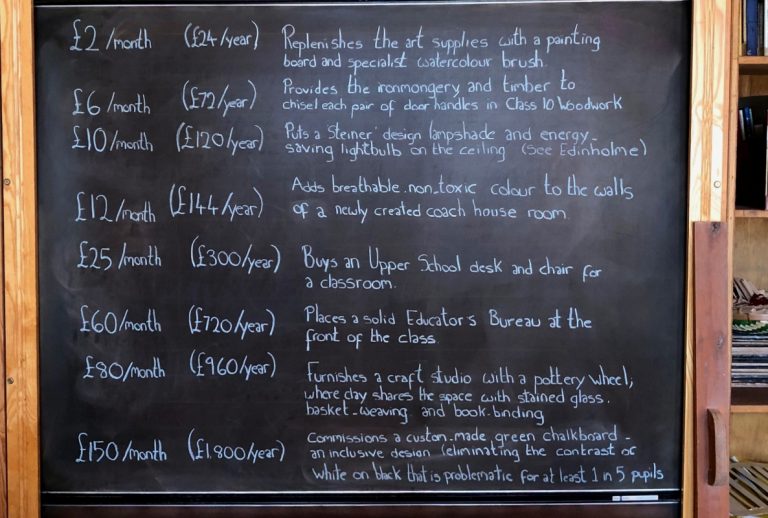 £2/month (£24/year) Replenishes the art supplies with a painting
board and specialist watercolour brush.
Provides the ironmongery and timber to
£6/month (£72/year) chisel each pair of door handles in Class 10 Woodwork
£10/month (£120/year) Puts a 'Steiner' design lampshade and energy-
saving lightbulb on the ceiling (see Edinholme)
Adds breathable non-toxic colour to the walls
£12/month (£144/year) of a newly created coach house room.
£25/month (£300/year) Buys an Upper School desk and chair for
a classroom.
£60/month (£720/year) Places a solid Educator's Bureau at the
front of the class.
£80/month (£960/year) Furnishes a craft studio with a pottery wheel,
where clay shares the space with stained glass,
basket-weaving and book-binding
£150/month (£1,800/year) Commissions a custom-made green chalkboard -
an inclusive design (eliminating the contrast of
white on black that is problematic for at least 1 in 5 pupils